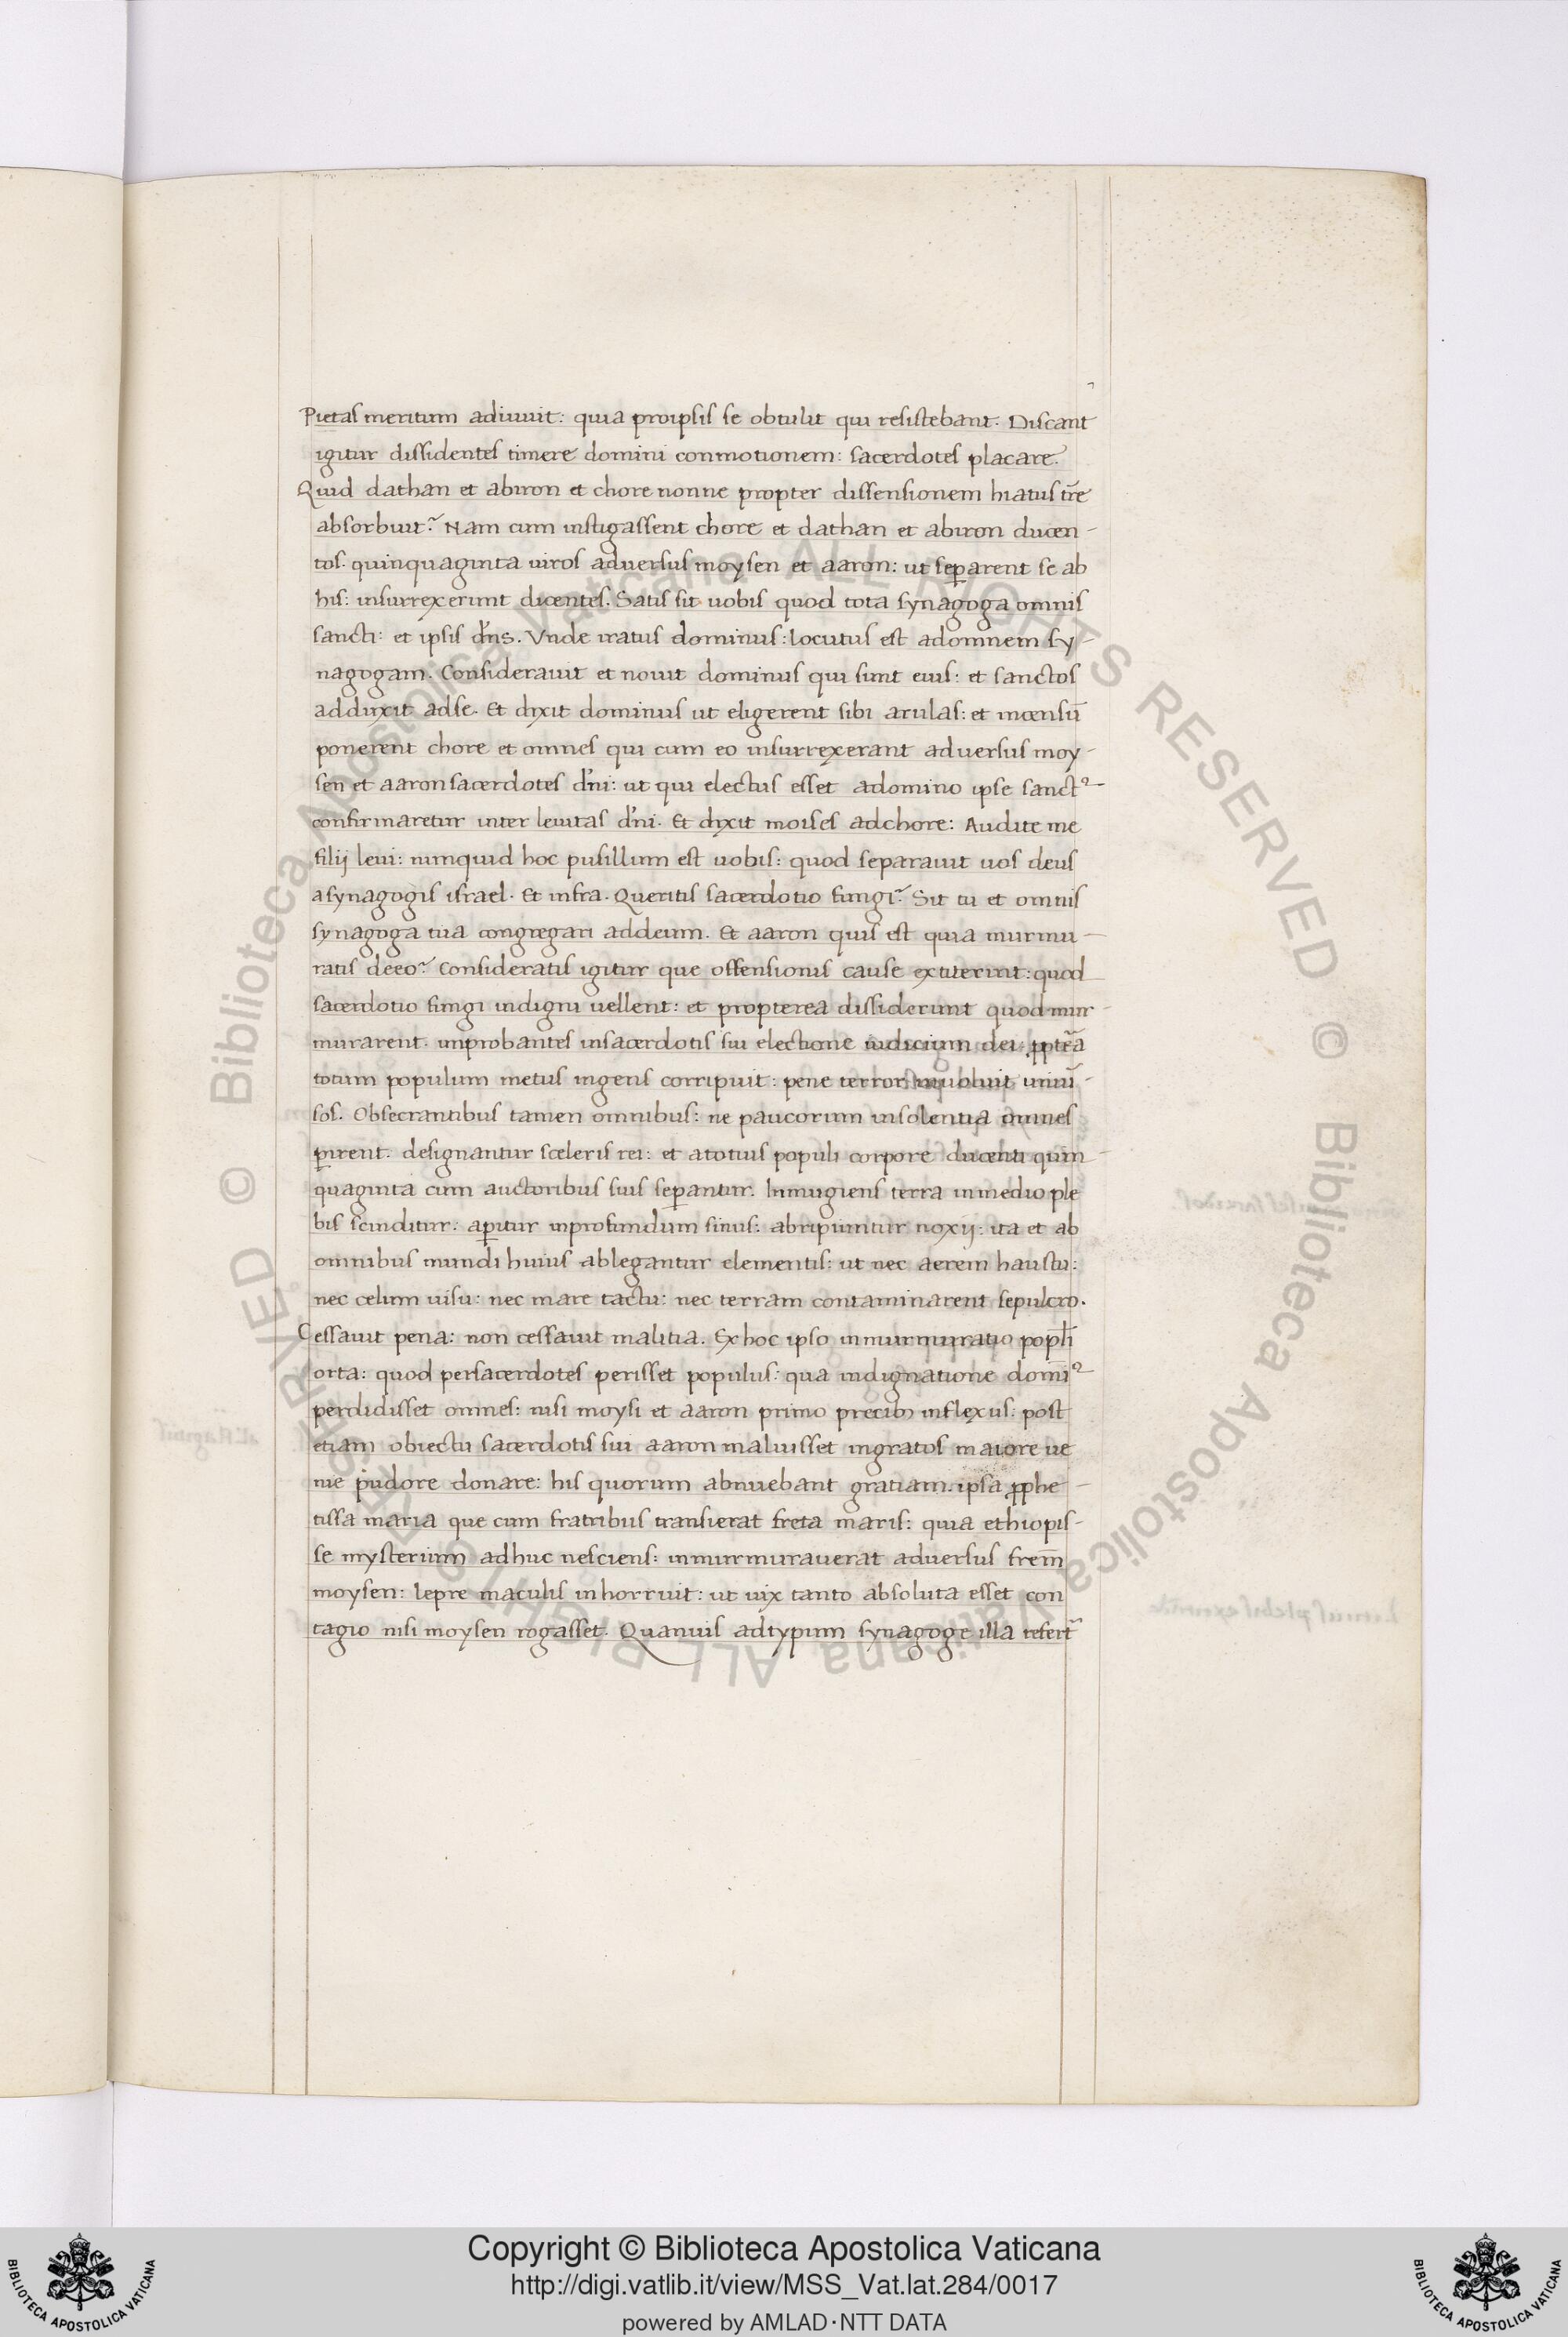 Pietas meritum adiuuit: quia proipsis se obtulit qui resistebant. Discant
igitur dissidentes timere domini conmotionem: sacerdotes placare.
Quid dathan et abiron et chore nonne propter dissensionem hiatus tr̄e
absorbuit? Nam cum instigassent chore et dathan et abiron ducen-
tos. quinquaginta uiros aduersus moysen et aaron: ut sep̱arent se ab
his: insurrexerunt dicentes. Satis sit uobis quod tota synagoga omnis
sancti: et ipsis dn̄s. Vnde iratus dominus: locutus est adomnem sy-
nagogam. Considerauit et nouit dominus qui sunt eius: et sanctos
adduxit adse. Et dixit dominus ut eligerent sibi arulas: et incensū
ponerent chore et omnes qui cum eo insurrexerant aduersus moy-
sen et aaron sacerdotes dn̄i: ut qui electus esset adomino ipse sanctꝰ
confirmaretur inter leuitas dn̄i. Et dixit moises adchore: Audite me
filij leui: nunquid hoc pusillum est uobis: quod separauit uos deus
asynagogis israel. Et infra. Queritis sacerdotio fungi? Sit tu et omnis
synagoga tua congregari addeum. Et aaron quis est quia murmu-
ratis deeo? Consideratis igitur que offensionis cause extiterint: quod
sacerdotio fungi indigni uellent: et propterea dissiderunt quod mur-
murarent. improbantes insacerdotis sui electione iudicium dei. ꝓpterā
totum populum metus ingens corripuit: pene terror inuoluit uniu-
sos. Obsecrantibus tamen omnibus: ne paucorum insolentia omnes
ꝑirent. designantur sceleris rei: et atotius populi corpore ducenti quin-
quaginta cum auctoribus suis seꝑantur. Inmugiens terra inmedio ple
bis scinditur: aꝑitur inprofundum sinus: abripiuntur noxij: ita et ab
omnibus mundi huius ablegantur elementis: ut nec aerem haustu:
nec celum uisu: nec mare tactu: nec terram contaminarent sepulcro.
Cessauit pena: non cessauit malitia. Ex hoc ipso inmurmuratio popl̄i
orta: quod persacerdotes perisset populus: qua indignatione dominꝰ
perdidisset omnes: nisi moysi et aaron primo precib; inflexus: post
etiam obiectu sacerdotis sui aaron maluisset ingratos maiore ue
nie pudore donare: his quorum abnuebant gratiam. ipsa ꝓphe-
tissa maria que cum fratribus transierat freta maris: quia ethiopis-
se mysterium adhuc nesciens: inmurmurauerat aduersus frem̄
moysen: lepre maculis inhorruit: ut uix tanto absoluta esset con
tagio nisi moysen rogasset. Quanuis adtypum synagoge illa refert̃
Copyright © Biblioteca Apostolica Vaticana
http://digi.vatlib.it/view/MSS_Vat.lat.284/0017
powered by AMLAD·NTT DATA
BIBLIOTECA APOSTOLICA VATICANA
BIBLIOTECA APOSTOLICA VATICANA
© Biblioteca Apostolica Vaticana ALL RIGHTS RESERVED © Biblioteca Apostolica Vaticana ALL RIGHTS RESERVED